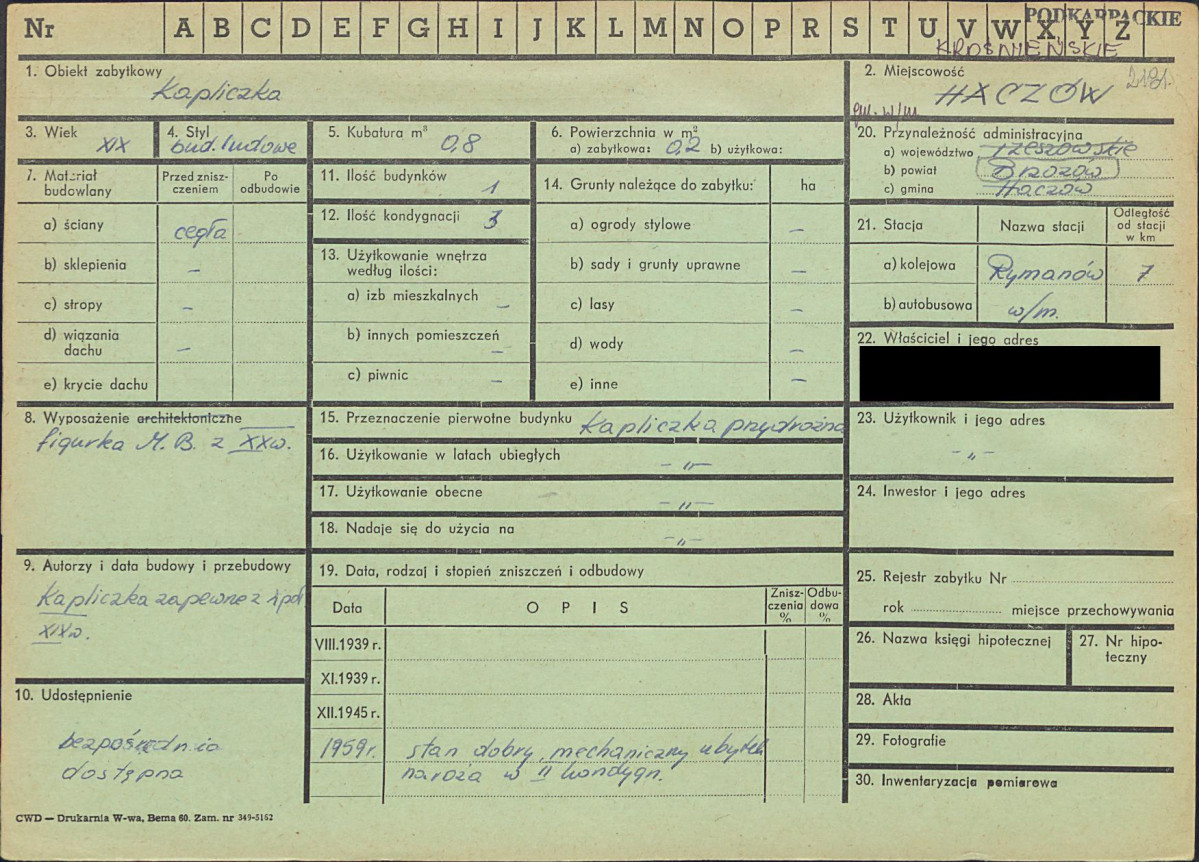 Nr A B C D E F G H I J K L M N O P R S T U V W X Y Z
PODKARPACKIE
KROŚNIEŃSKIE
1. Obiekt zabytkowy
Kapliczka
2. Miejscowość
HACZÓW
pow. w/m.
3. Wiek
XIX
4. Styl
bud. ludowe
5. Kubatura m³
0,8
6. Powierzchnia w m²
a) zabytkowa: 0,2 b) użytkowa:
7. Materiał budowlany
Przed zniszczeniem
Po odbudowie
a) ściany cegła
b) sklepienia –
c) stropy –
d) wiązania dachu –
e) krycie dachu
8. Wyposażenie architektoniczne
figurka M. B. z XXw.
9. Autorzy i data budowy i przebudowy
Kapliczka zapewne z I poł
XIXw.
10. Udostępnienie
bezpośrednio
dostępna
11. Ilość budynków 1
12. Ilość kondygnacji 3
13. Użytkowanie wnętrza
według ilości:
a) izb mieszkalnych –
b) innych pomieszczeń –
c) piwnic –
14. Grunty należące do zabytku: ha
a) ogrody stylowe –
b) sady i grunty uprawne –
c) lasy –
d) wody –
e) inne –
15. Przeznaczenie pierwotne budynku Kapliczka przydrożna
16. Użytkowanie w latach ubiegłych –„–
17. Użytkowanie obecne –„–
18. Nadaje się do użycia na –„–
19. Data, rodzaj i stopień zniszczeń i odbudowy
Data OPIS Zniszczenia % Odbudowa %
VIII.1939 r.
XI.1939 r.
XII.1945 r.
1959r. stan dobry, mechaniczny ubytek
naroża w II kondygn.
20. Przynależność administracyjna
a) województwo rzeszowskie
b) powiat Brzozów
c) gmina Haczów
21. Stacja Nazwa stacji Odległość od stacji w km
a) kolejowa Rymanów 7
b) autobusowa w/m.
22. Właściciel i jego adres
23. Użytkownik i jego adres
-„-
24. Inwestor i jego adres
25. Rejestr zabytku Nr
rok miejsce przechowywania
26. Nazwa księgi hipotecznej
27. Nr hipoteczny
28. Akta
29. Fotografie
30. Inwentaryzacja pomiarowa
CWD — Drukarnia W-wa, Bema 60. Zam. nr 349-5162